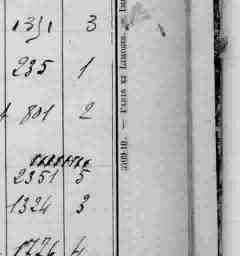 1351 3
235 1
801 2
2351 5
1324 3
1776 4
3509-10. — PARIS ET LIMOGES. —